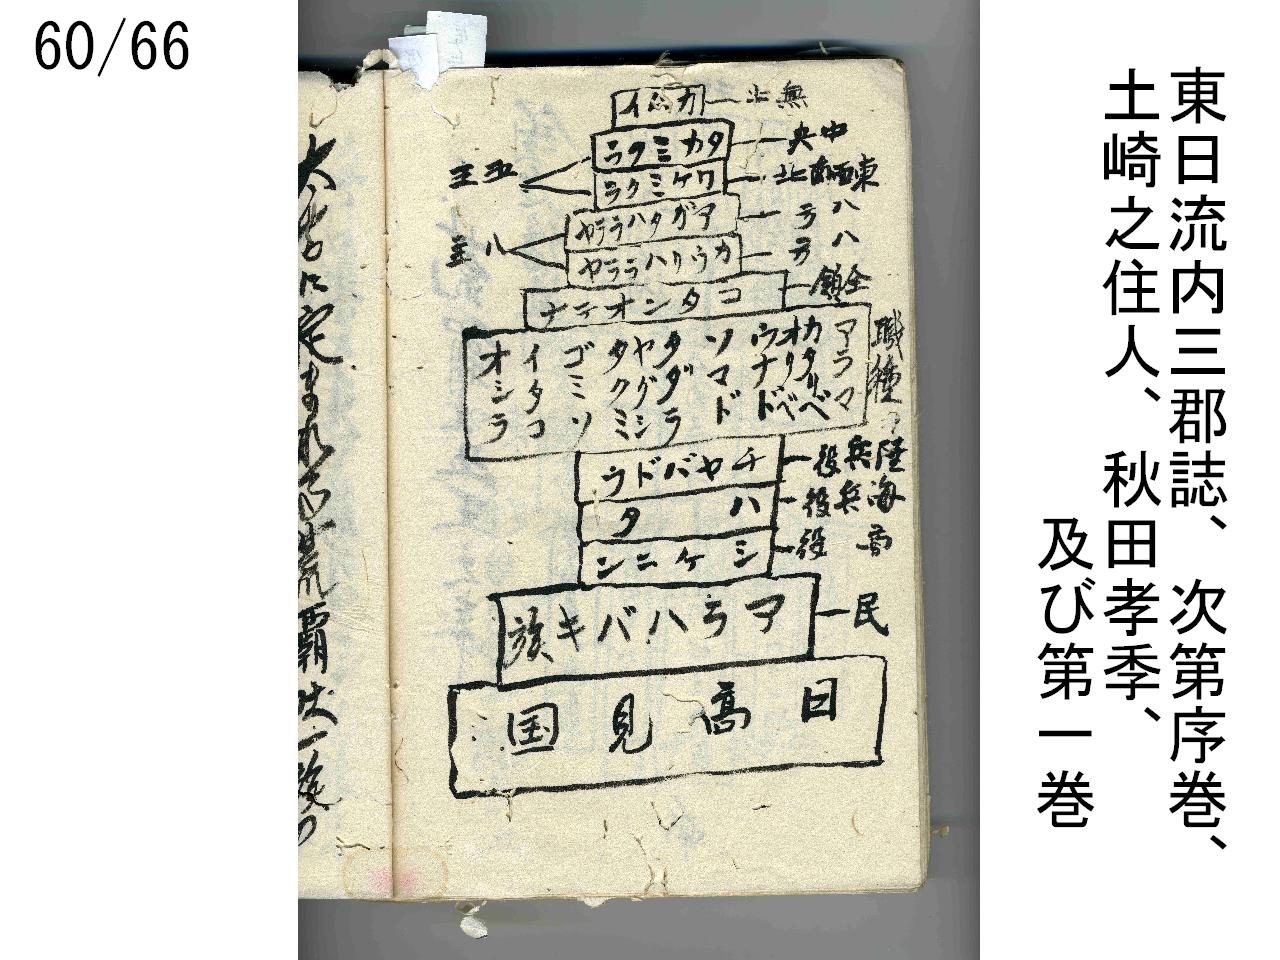 60/66
東日流内三郡誌、次第序巻、
土崎之住人、秋田孝季、
及び第一巻
カムイ
無上
タカミクラ
中央
ワケミクラ
東西南北
五主
アガタハララヤ
八方
カウリハララヤ
八方
八主
コタンオテナ
全領
職種
アラマ
カタリベ
オリベ
ウナド
ソマド
タダラ
ヤグシ
タクミ
ゴミソ
イタコ
オシラ
チヤバドウ
陸兵役
ハタ
海兵役
シケニン
商役
アラハバキ族
民
日高見国
に定まれる荒覇吐一族の